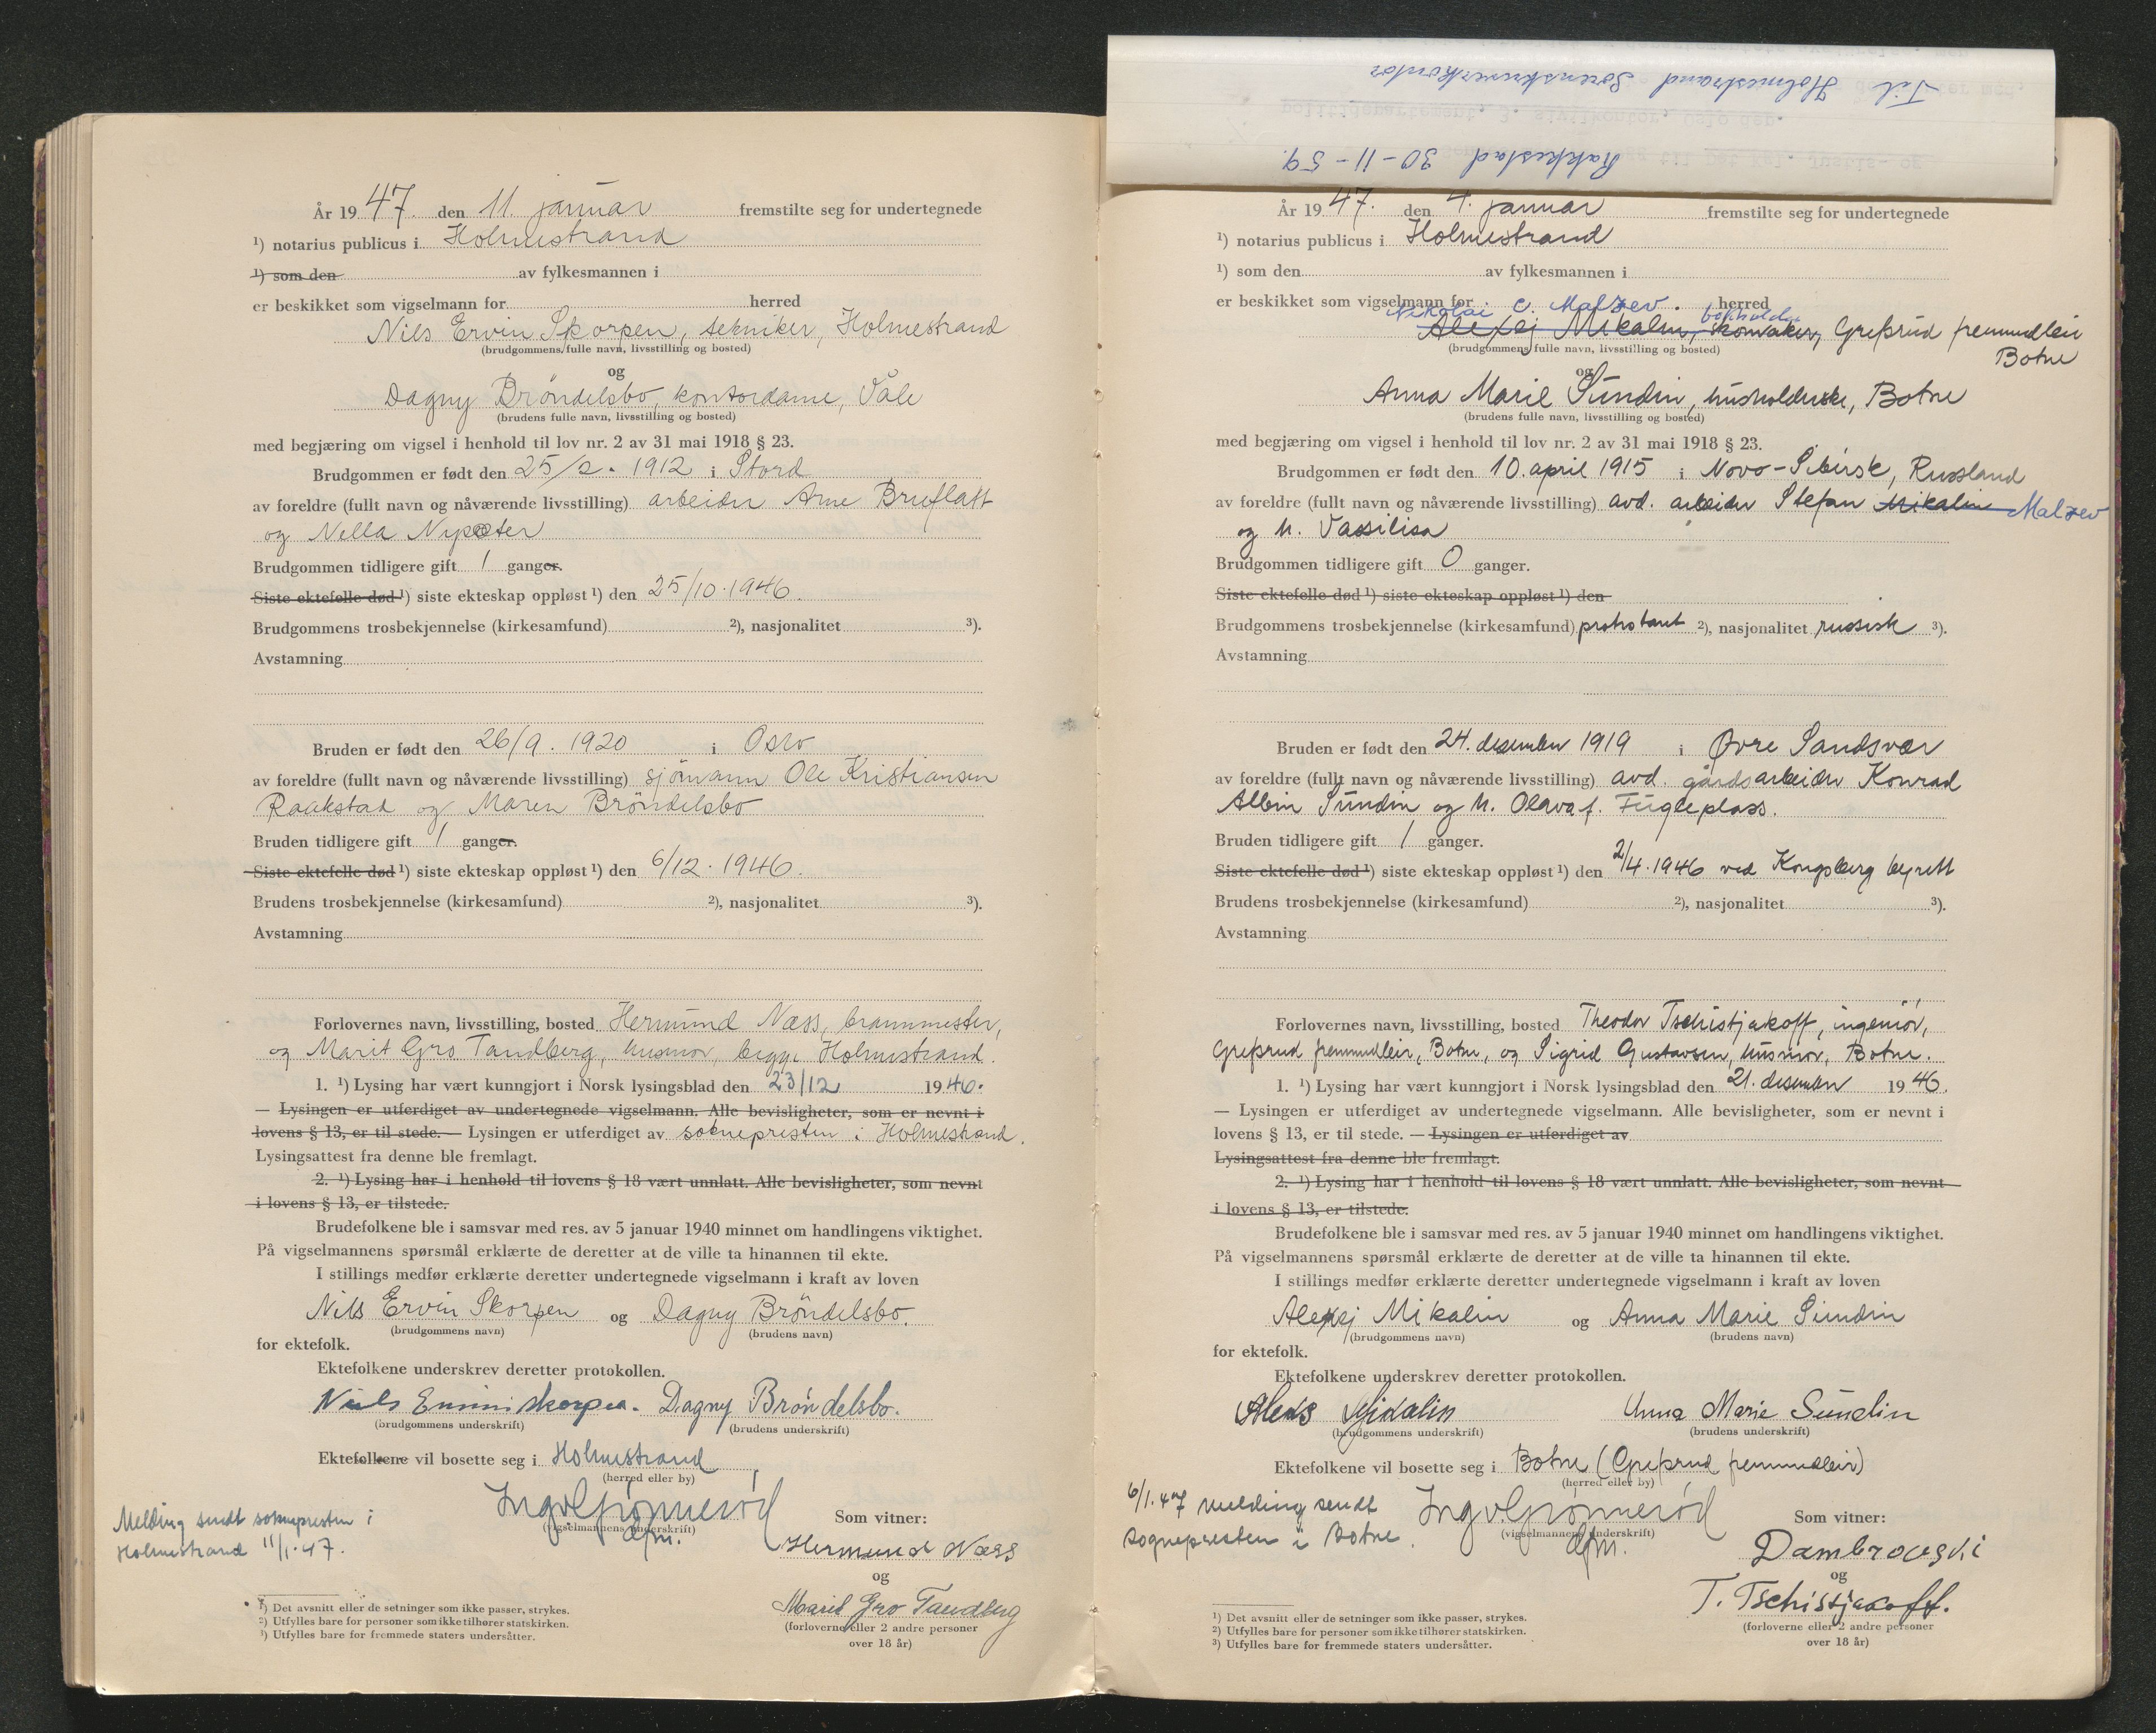 År 1947. den 11. januar fremstilte seg for undertegnede
¹) notarius publicus i Holmestrand
¹) som den av fylkesmannen i
er beskikket som vigselmann for herred
Nils Ervin Skorpen, tekniker, Holmestrand
(brudgommens fulle navn, livsstilling og bosted)
og
Dagny Bröndelsbo, kontordame, Våle
(brudens fulle navn, livsstilling og bosted)
med begjæring om vigsel i henhold til lov nr. 2 av 31 mai 1918 § 23.
Brudgommen er født den 25/2. 1912 i Stord
av foreldre (fullt navn og nåværende livsstilling) arbeider Arne Bruflatt
og Nella Nypøter
Brudgommen tidligere gift 1 ganger.
Siste ektefelle død ¹) siste ekteskap oppløst ¹) den 25/10.1946.
Brudgommens trosbekjennelse (kirkesamfund) ²), nasjonalitet ³).
Avstamning
Bruden er født den 26/9. 1920 i Oslo
av foreldre (fullt navn og nåværende livsstilling) sjömann Ole Kristiansen
Raakstad og Maren Bröndelsbo
Bruden tidligere gift 1 ganger.
Siste ektefelle død ¹) siste ekteskap oppløst ¹) den 6/12. 1946.
Brudens trosbekjennelse (kirkesamfund) ²), nasjonalitet ³).
Avstamning
Forlovernes navn, livsstilling, bosted Hermund Næss, brannmester,
og Marit Gro Tandberg, husmor, begge Holmestrand.
1. ¹) Lysing har vært kunngjort i Norsk lysingsblad den 23/12 1946.
— Lysingen er utferdiget av undertegnede vigselmann. Alle bevisligheter, som er nevnt i
lovens § 13, er til stede. — Lysingen er utferdiget av sokneprestern i Holmestrand.
Lysingsattest fra denne ble fremlagt.
2. ¹) Lysing har i henhold til lovens § 18 vært unnlatt. Alle bevisligheter, som nevnt
i lovens § 13, er tilstede.
Brudefolkene ble i samsvar med res. av 5 januar 1940 minnet om handlingens viktighet.
På vigselmannens spørsmål erklærte de deretter at de ville ta hinannen til ekte.
I stillings medfør erklærte deretter undertegnede vigselmann i kraft av loven
Nils Ervin Skorpen og Dagny Bröndelsbo.
(brudgommens navn) (brudens navn)
for ektefolk.
Ektefolkene underskrev deretter protokollen.
Nils Ervin Skorpen. Dagny Bröndelsbo.
(brudgommens underskrift) (brudens underskrift)
Ektefolkene vil bosette seg i Holmestrand
(herred eller by)
Ingv. Grønnerød
(vigselmannens underskrift)
dfm.
Melding sendt soknepresten i
Holmestrand 11/1.47.
Som vitner:
Hermund Næss
og
Marit Gro Tandberg
(forloverne eller 2 andre personer
over 18 år)
¹) Det avsnitt eller de setninger som ikke passer, strykes.
²) Utfylles bare for personer som ikke tilhører statskirken.
³) Utfylles bare for fremmede staters undersåtter.
Til Holmestrand Sorenskriverkontor
Rakkestad 30-11-59.
År 1947. den 4. januar fremstilte seg for undertegnede
¹) notarius publicus i Holmestrand
¹) som den av fylkesmannen i
er beskikket som vigselmann for herred
Nikolai C. Malzev. bokholder
Alexej Mikalin, skomaker, Greprud fremmedleir
Botne
(brudgommens fulle navn, livsstilling og bosted)
og
Anna Marie Sundin, husholderske, Botne
(brudens fulle navn, livsstilling og bosted)
med begjæring om vigsel i henhold til lov nr. 2 av 31 mai 1918 § 23.
Brudgommen er født den 10. april 1915 i Novo-Sibirsk, Russland
av foreldre (fullt navn og nåværende livsstilling) avd. arbeider Stefan Mikalin Malzev
og h. Vassilisa
Brudgommen tidligere gift 0 ganger.
Siste ektefelle død ¹) siste ekteskap oppløst ¹) den
Brudgommens trosbekjennelse (kirkesamfund) protestant ²), nasjonalitet russisk ³).
Avstamning
Bruden er født den 24. desember 1919 i Øvre Sandsvær
av foreldre (fullt navn og nåværende livsstilling) avd. gårdsarbeider Konrad
Albin Sundin og h. Olava f. Fugleplass.
Bruden tidligere gift 1 ganger.
Siste ektefelle død ¹) siste ekteskap oppløst ¹) den 2/4.1946 ved Kongsberg byrett
Brudens trosbekjennelse (kirkesamfund) ²), nasjonalitet ³).
Avstamning
Forlovernes navn, livsstilling, bosted Theodor Tschistjakoff, ingeniør,
Greprud fremmedleir, Botne, og Sigrid Gustavsen, husmor, Botne.
1. ¹) Lysing har vært kunngjort i Norsk lysingsblad den 21. desember 1946.
— Lysingen er utferdiget av undertegnede vigselmann. Alle bevisligheter, som er nevnt i
lovens § 13, er til stede. — Lysingen er utferdiget av
Lysingsattest fra denne ble fremlagt.
2. ¹) Lysing har i henhold til lovens § 18 vært unnlatt. Alle bevisligheter, som nevnt
i lovens § 13, er tilstede.
Brudefolkene ble i samsvar med res. av 5 januar 1940 minnet om handlingens viktighet.
På vigselmannens spørsmål erklærte de deretter at de ville ta hinannen til ekte.
I stillings medfør erklærte deretter undertegnede vigselmann i kraft av loven
Alexej Mikalin og Anna Marie Sundin
(brudgommens navn) (brudens navn)
for ektefolk.
Ektefolkene underskrev deretter protokollen.
Aleks Mikalin Anna Marie Sundin
(brudgommens underskrift) (brudens underskrift)
Ektefolkene vil bosette seg i Botne (Greprud fremmedleir)
(herred eller by)
6/1.47 melding sendt
sognepresten i Botne.
Ingv. Grønnerød
(vigselmannens underskrift)
dfm.
Som vitner:
Dambrovski
og
T. Tschistjakoff.
(forloverne eller 2 andre personer
over 18 år)
¹) Det avsnitt eller de setninger som ikke passer, strykes.
²) Utfylles bare for personer som ikke tilhører statskirken.
³) Utfylles bare for fremmede staters undersåtter.